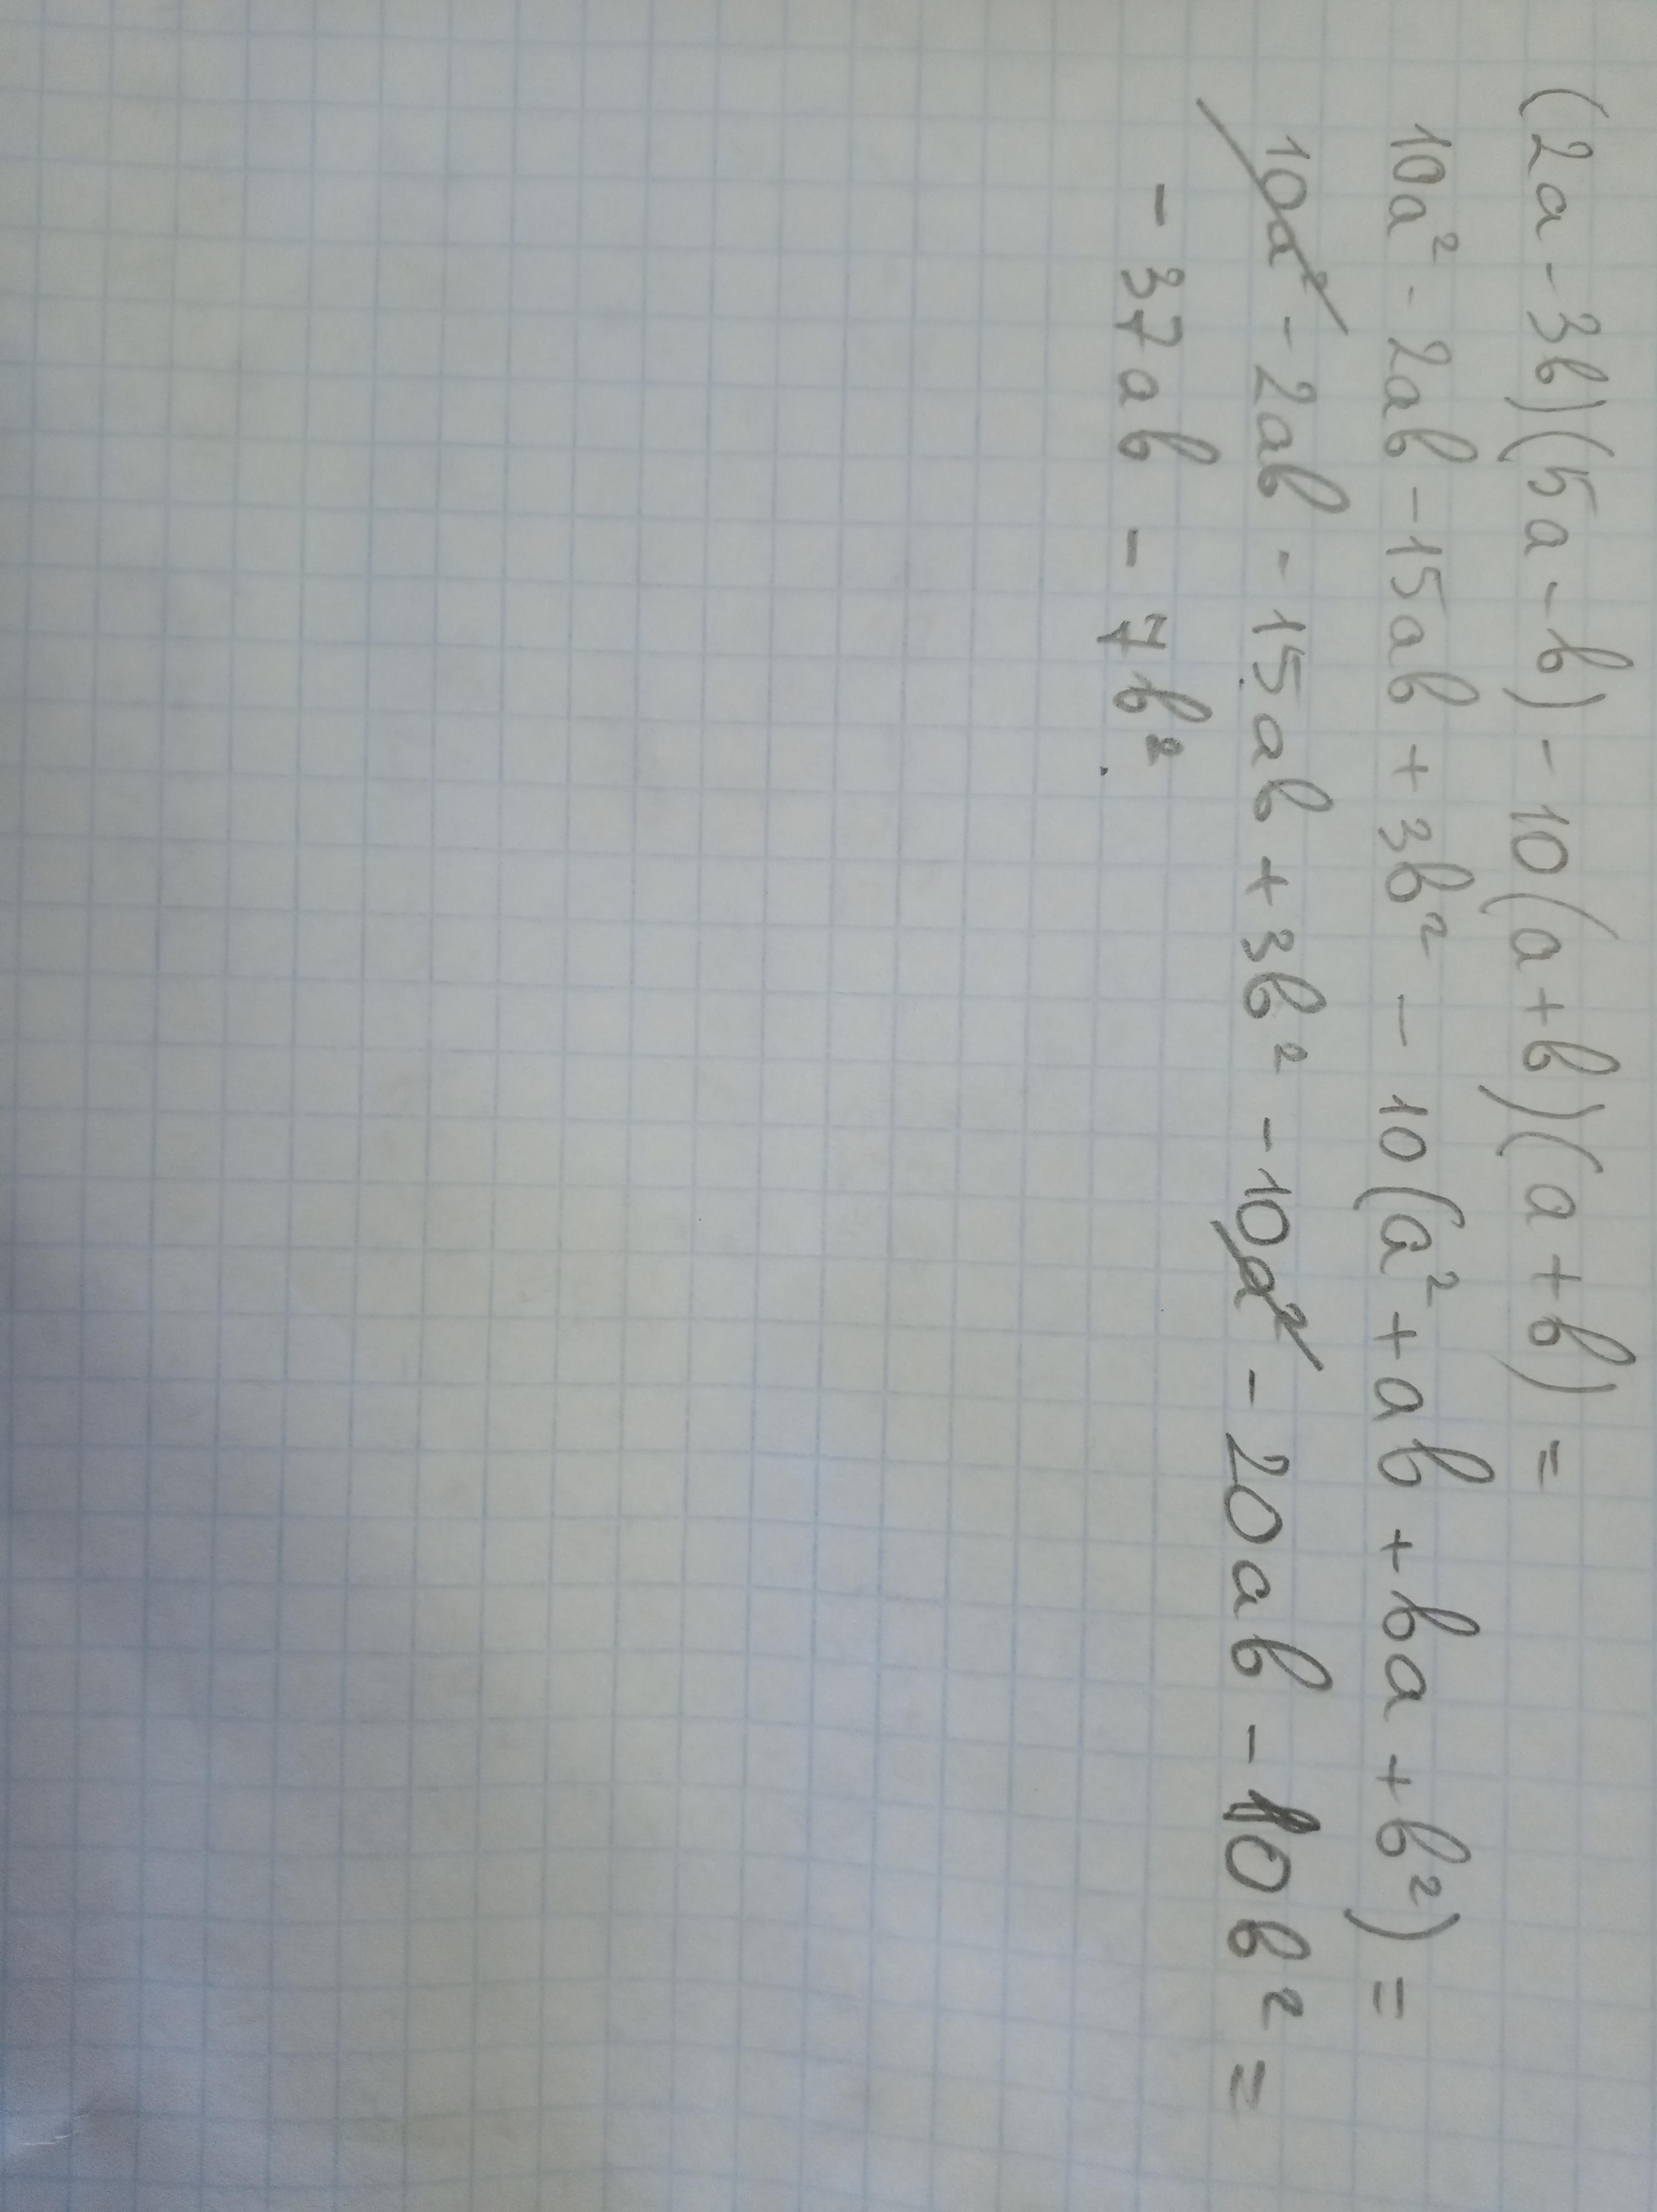 (2a - 3b)(5a - b) - 10(a + b)(a + b) =
10a² - 2ab - 15ab + 3b² - 10(a² + ab + ba + b²) =
10a² - 2ab - 15ab + 3b² - 10a² - 20ab - 10b² =
- 37ab - 7b²